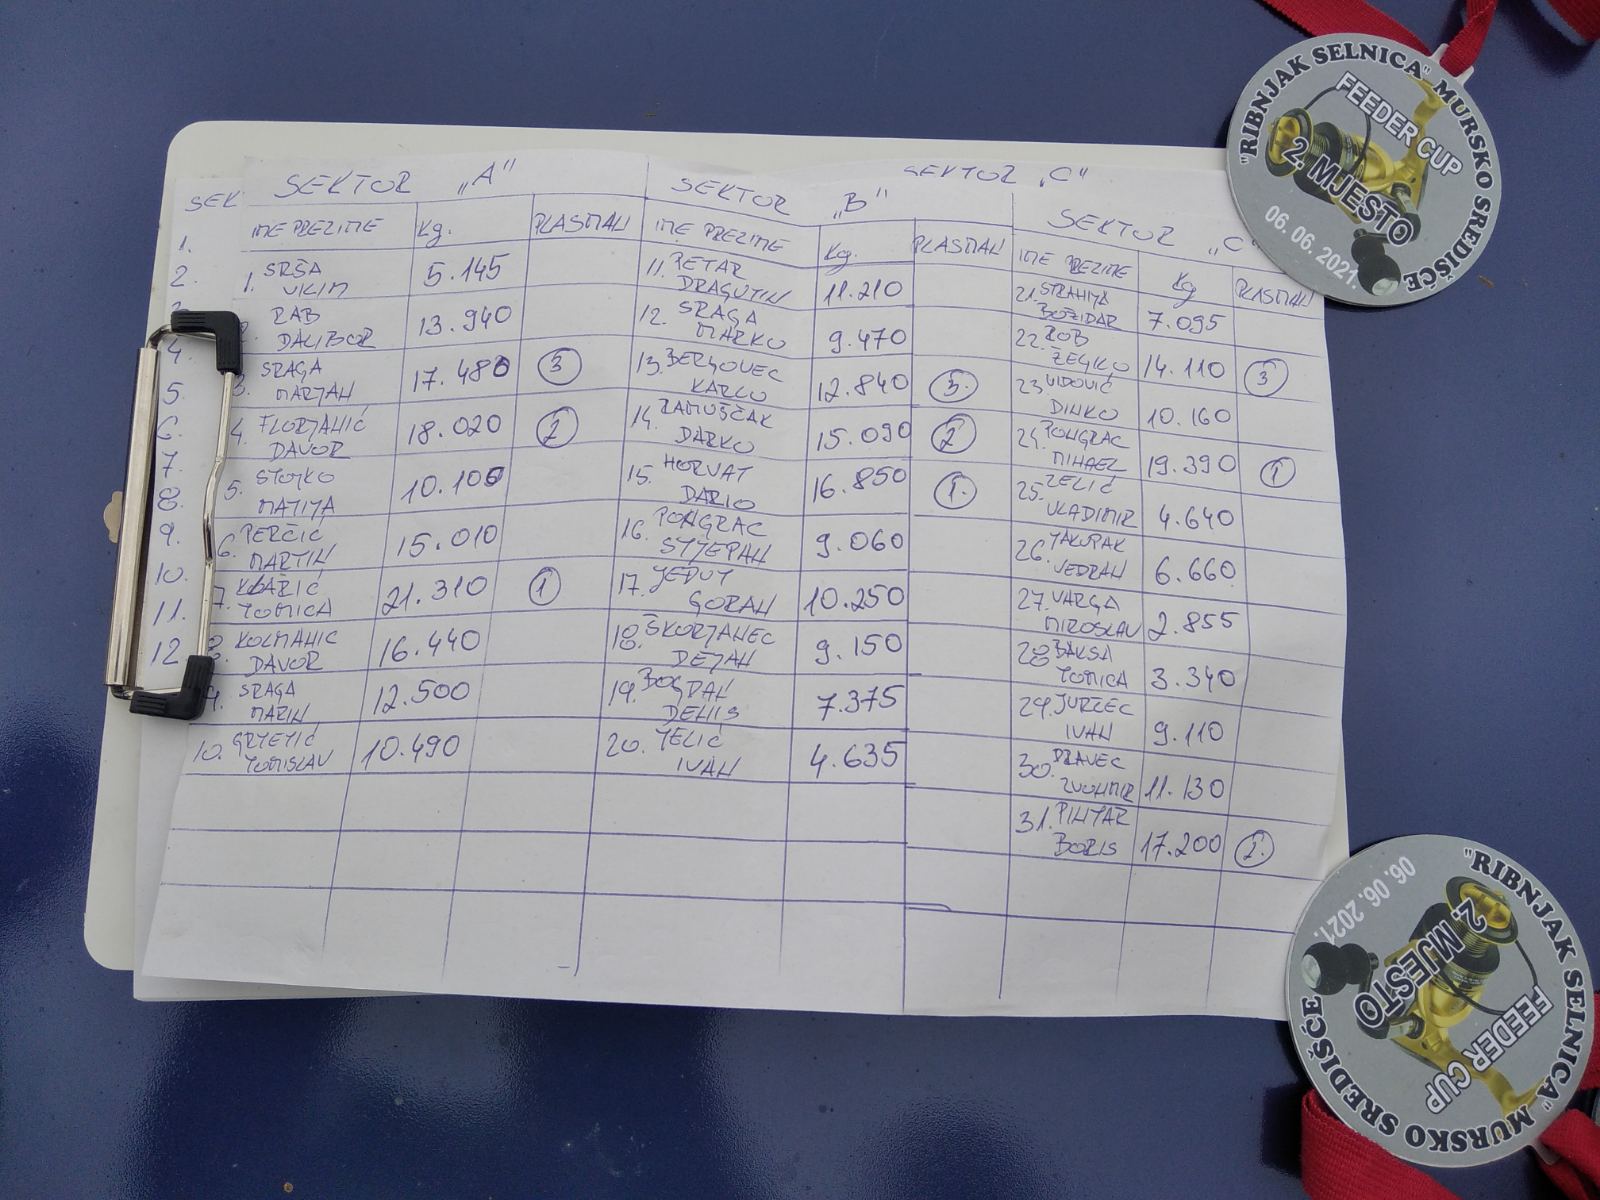 SEKTOR „A"
IME PREZIME Kg. PLASMAN
1. SRŠA 5.145
13.940
DALIBOR
SRAGA 17.480 3
MARJAN
4. FLORJANIĆ 18.020 2
DAVOR
5. STOJKO 10.100
MATIJA
6. PERČIĆ 15.010
MARTIN
7. KLARIĆ 21.310 1
TOMICA
KOLMANIC 16.440
DAVOR
SRAGA 12.500
MARIN
10. 10.490
TOMISLAV
SEKTOR „B"
IME PREZIME Kg. PLASMAN
11. PETAR 11.210
DRAGUTIN
12. SRAGA 9.470
MARKO
13. BERGOVEC 12.840 3.
KARLO
14. RAMUŠČAK 15.090 2
DARKO
15. HORVAT 16.850 1.
DARIO
16. PONGRAC 9.060
STJEPAN
17. 10.250
GORAN
18. ŠKORJANEC 9.150
DEJAN
19. BOGDAN 7.375
DENIS
20. JELIĆ 4.635
IVAN
SEKTOR „C"
SEKTOR „C"
IME PREZIME Kg PLASMAN
21. STRAHIJA 7.095
BOŽIDAR
22. ROB 14.110 3
ŽELJKO
23. VIDOVIĆ 10.160
DINKO
24. PONGRAC 19.390 1
MIHAEL
25. ZELIĆ 4.640
VLADIMIR
26. JAKUPAK 6.660
VEDRAN
27. VARGA 2.855
MIROSLAV
28. BAKSA 3.340
TOMICA
29. JURČEC 9.110
IVAN
30. DRAVEC 11.130
ZVONIMIR
31. PINTAR 17.200 2.
BORIS
SEK
1.
2.
4.
5.
6.
7.
8.
9.
10.
11.
12
"RIBNJAK SELNICA" MURSKO SREDIŠĆE
FEEDER CUP
2. MJESTO
06.06.2021.
"RIBNJAK SELNICA" MURSKO SREDIŠĆE
FEEDER CUP
2. MJESTO
06.06.2021.